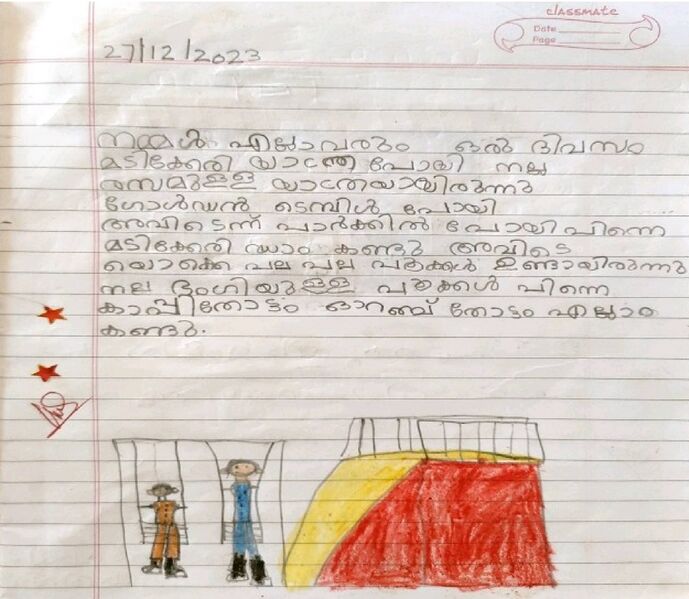 classmate
Date
Page
27/12/2023
നമ്മൾ എല്ലാവരും ഒരു ദിവസം
മടിക്കേരി യാത്ര പോയി നല്ല
രസമുള്ള യാത്രയായിരുന്നു
ഗോൾഡൻ ടെമ്പിൾ പോയി
അവിടെന്ന് പാർക്കിൽ പോയി പിന്നെ
മടിക്കേരി ഡാം കണ്ടു അവിടെ
യൊക്കെ പല പല പൂക്കൾ ഉണ്ടായിരുന്നു
നല്ല ഭംഗിയുള്ള പൂക്കൾ പിന്നെ
കാപ്പിതോട്ടം ഓറഞ്ച് തോട്ടം എല്ലാം
കണ്ടു.